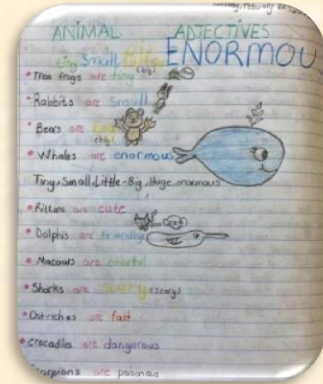 ANIMAL ADJECTIVES
tiny Small Big ENORMOU
Tree frogs are tiny
Rabbits are Small
Bears are big
(big)
Whales are enormous
Tiny, Small, Little - Big, Huge, enormous
Kittens are cute
Dolphis are Friendly
Macaws are colorful
Sharks are Scary (scary)
Ostriches are fast
Crocodiles are dangerous
Scorpions are